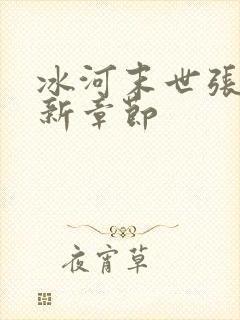 冰河末世張
新章節
夜宵草